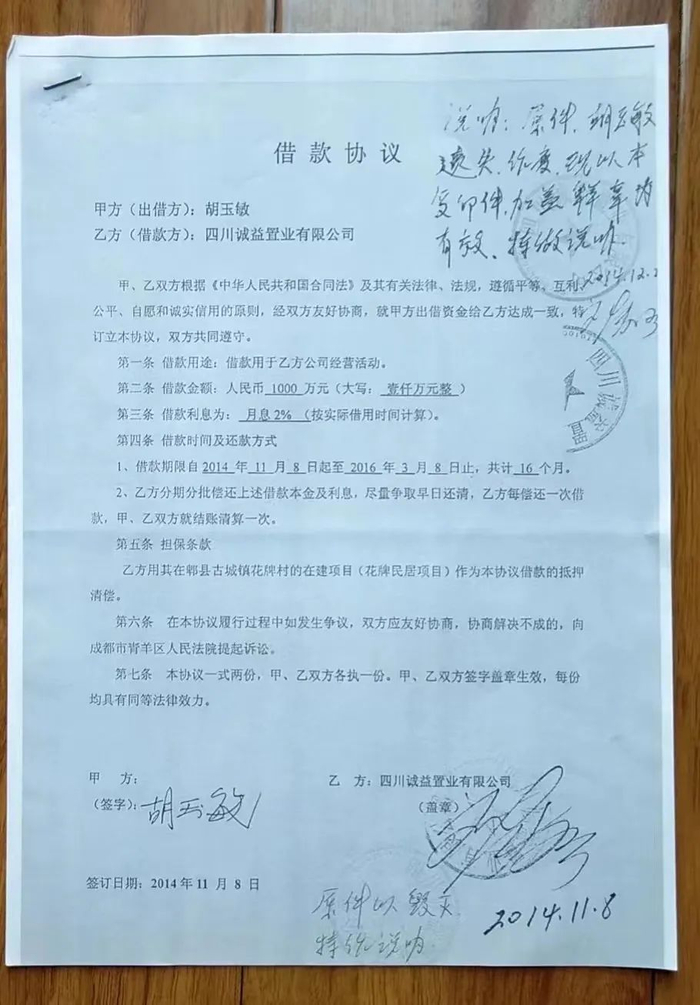 借款协议
说明：原件，胡玉敏
遗失、作废，现以本
复印件，加盖鲜章为
有效。特做说明。
2014.12.2
甲方（出借方）：胡玉敏
乙方（借款方）：四川诚益置业有限公司
甲、乙双方根据《中华人民共和国合同法》及其有关法律、法规，遵循平等、互利、
公平、自愿和诚实信用的原则，经双方友好协商，就甲方出借资金给乙方达成一致，特
订立本协议，双方共同遵守。
四川诚益置
第一条 借款用途：借款用于乙方公司经营活动。
第二条 借款金额：人民币 1000 万元（大写： 壹仟万元整 ）
第三条 借款利息为： 月息2% （按实际借用时间计算）。
第四条 借款时间及还款方式
1、借款期限自 2014 年 11 月 8 日起至 2016 年 3 月 8 日止，共计 16 个月。
2、乙方分期分批偿还上述借款本金及利息，尽量争取早日还清，乙方每偿还一次借
款，甲、乙双方就结账清算一次。
第五条 担保条款
乙方用其在郫县古城镇花牌村的在建项目（花牌民居项目）作为本协议借款的抵押
清偿。
第六条 在本协议履行过程中如发生争议，双方应友好协商，协商解决不成的，向
成都市青羊区人民法院提起诉讼。
第七条 本协议一式两份，甲、乙双方各执一份。甲、乙双方签字盖章生效，每份
均具有同等法律效力。
甲 方：
（签字）：胡玉敏
乙 方：四川诚益置业有限公司
（盖章）
签订日期：2014年11 月 8 日
2014.11.8
原件以毁灭.
特作说明